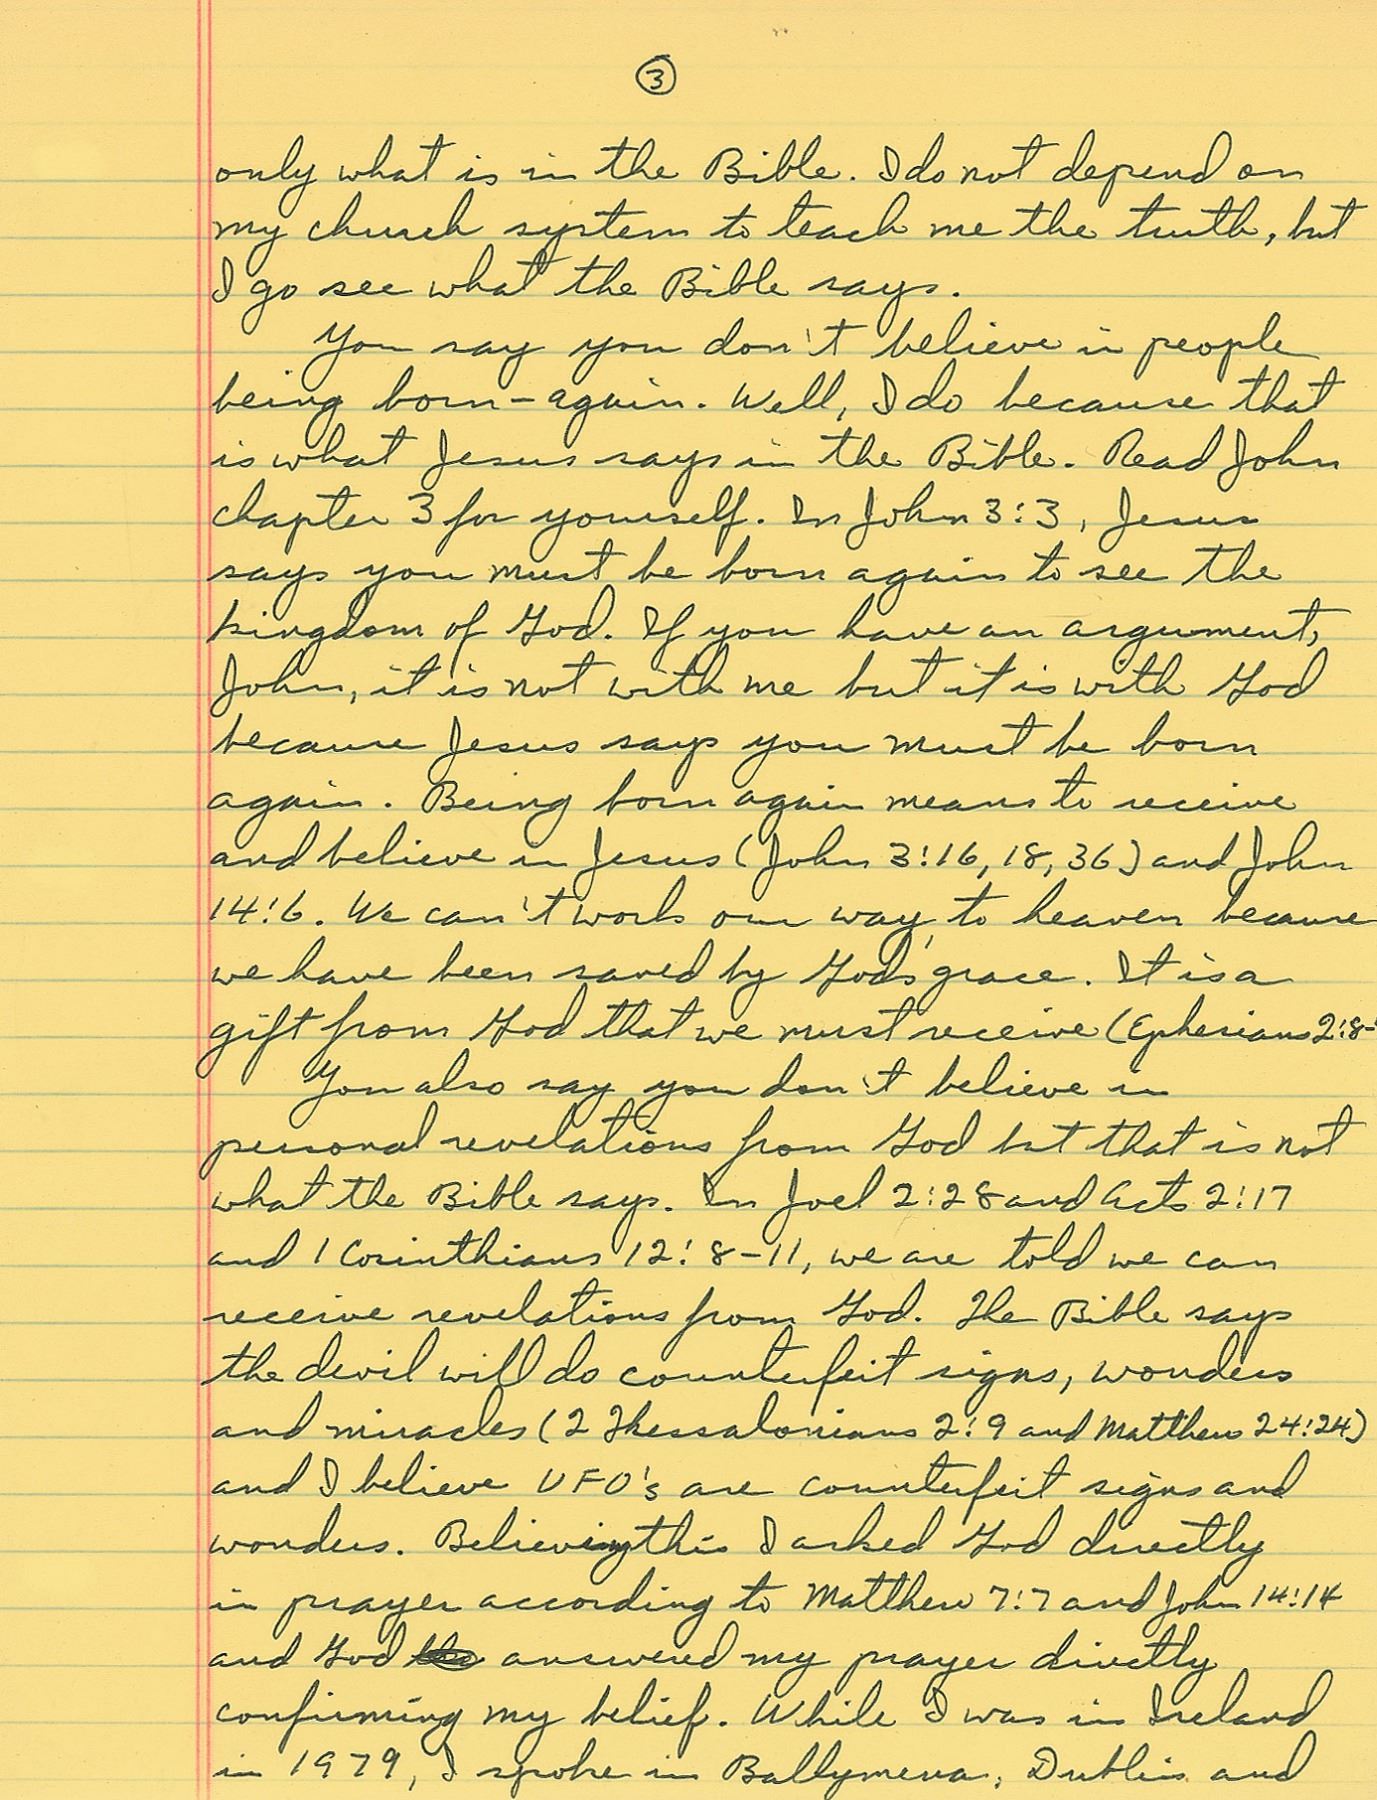 3
only what is in the Bible. I do not depend on
my church system to teach me the truth, but
I go see what the Bible says.
You say you don't believe in people
being born-again. Well, I do because that
is what Jesus says in the Bible. Read John
chapter 3 for yourself. In John 3:3, Jesus
says you must be born again to see the
kingdom of God. If you have an argument,
John, it is not with me but it is with God
because Jesus says you must be born
again. Being born again means to receive
and believe in Jesus (John 3:16, 18, 36) and John
14:6. We can't work our way to heaven because
we have been saved by God's grace. It is a
gift from God that we must receive (Ephesians 2:8-
You also say you don't believe in
personal revelations from God but that is not
what the Bible says. In Joel 2:28 and Acts 2:17
and 1 Corinthians 12:8-11, we are told we can
receive revelations from God. The Bible says
the devil will do counterfeit signs, wonders
and miracles (2 Thessalonians 2:9 and Matthew 24:24)
and I believe UFO's are counterfeit signs and
wonders. Believing this I asked God directly
in prayer according to Matthew 7:7 and John 14:14
and God answered my prayer directly
confirming my belief. While I was in Ireland
in 1979, I spoke in Ballymena, Dublin and